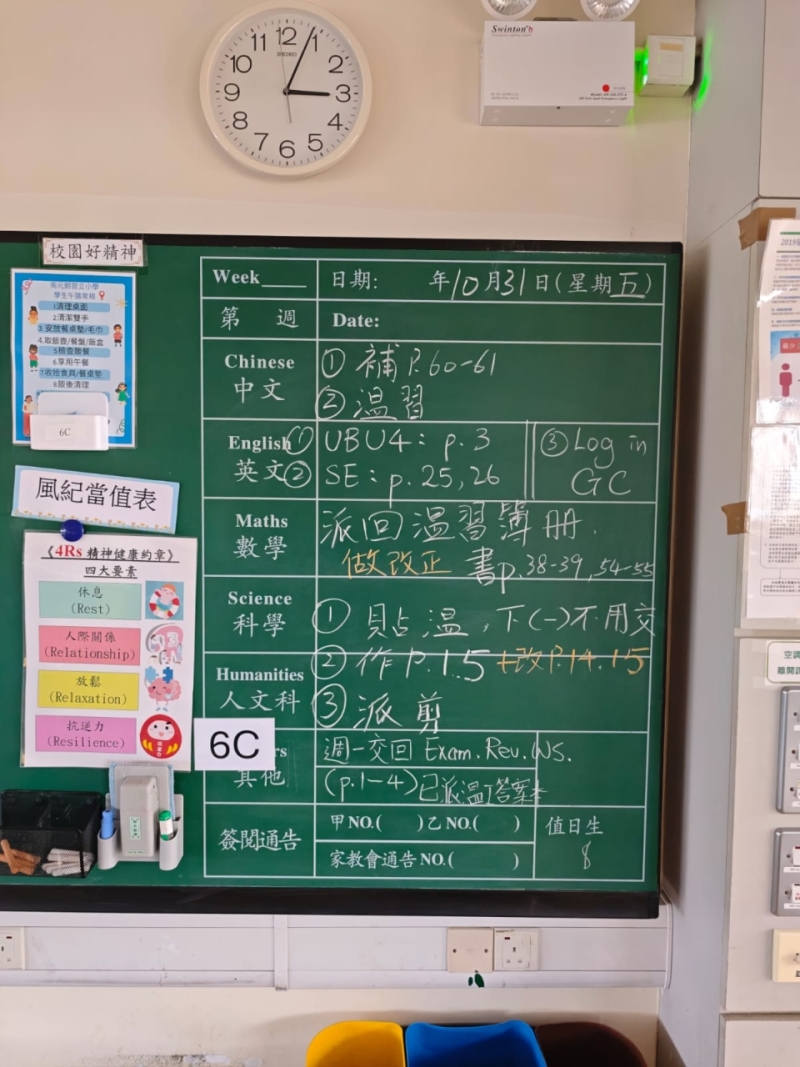 12
1
2
3
4
5
6
7
8
9
10
11
SEIKO
Swinton's
校園好精神
學生午膳常規
1.清理桌面
2.清潔雙手
3.安放餐桌墊/毛巾
4.取飯壺/餐盤/飯盒
5.檢查飯餐
6.享用午餐
7.收拾食具/餐桌墊
8.飯後清理
6C
風紀當值表
《4Rs 精神健康約章》
四大要素
休息
(Rest)
人際關係
(Relationship)
放鬆
(Relaxation)
抗逆力
(Resilience)
6C
Week
日期: 年10月31日(星期五)
第 週
Date:
Chinese
中文
① 補 P.60-61
② 溫習
English
英文
① UBU4: p.3
② SE: p.25,26
③ Log in
GC
Maths
數學
派回溫習簿冊.
做改正 書p.38-39,54-55
Science
科學
① 貼溫,下(一)不用交
② 作P.1.5 +改P.14.15
Humanities
人文科
③ 派剪
其他
週一交回 Exam.Rev.WS.
(p.1-4)已派溫習答案
簽閱通告
甲NO.( )乙NO.( )
家教會通告NO.( )
值日生
8
2019